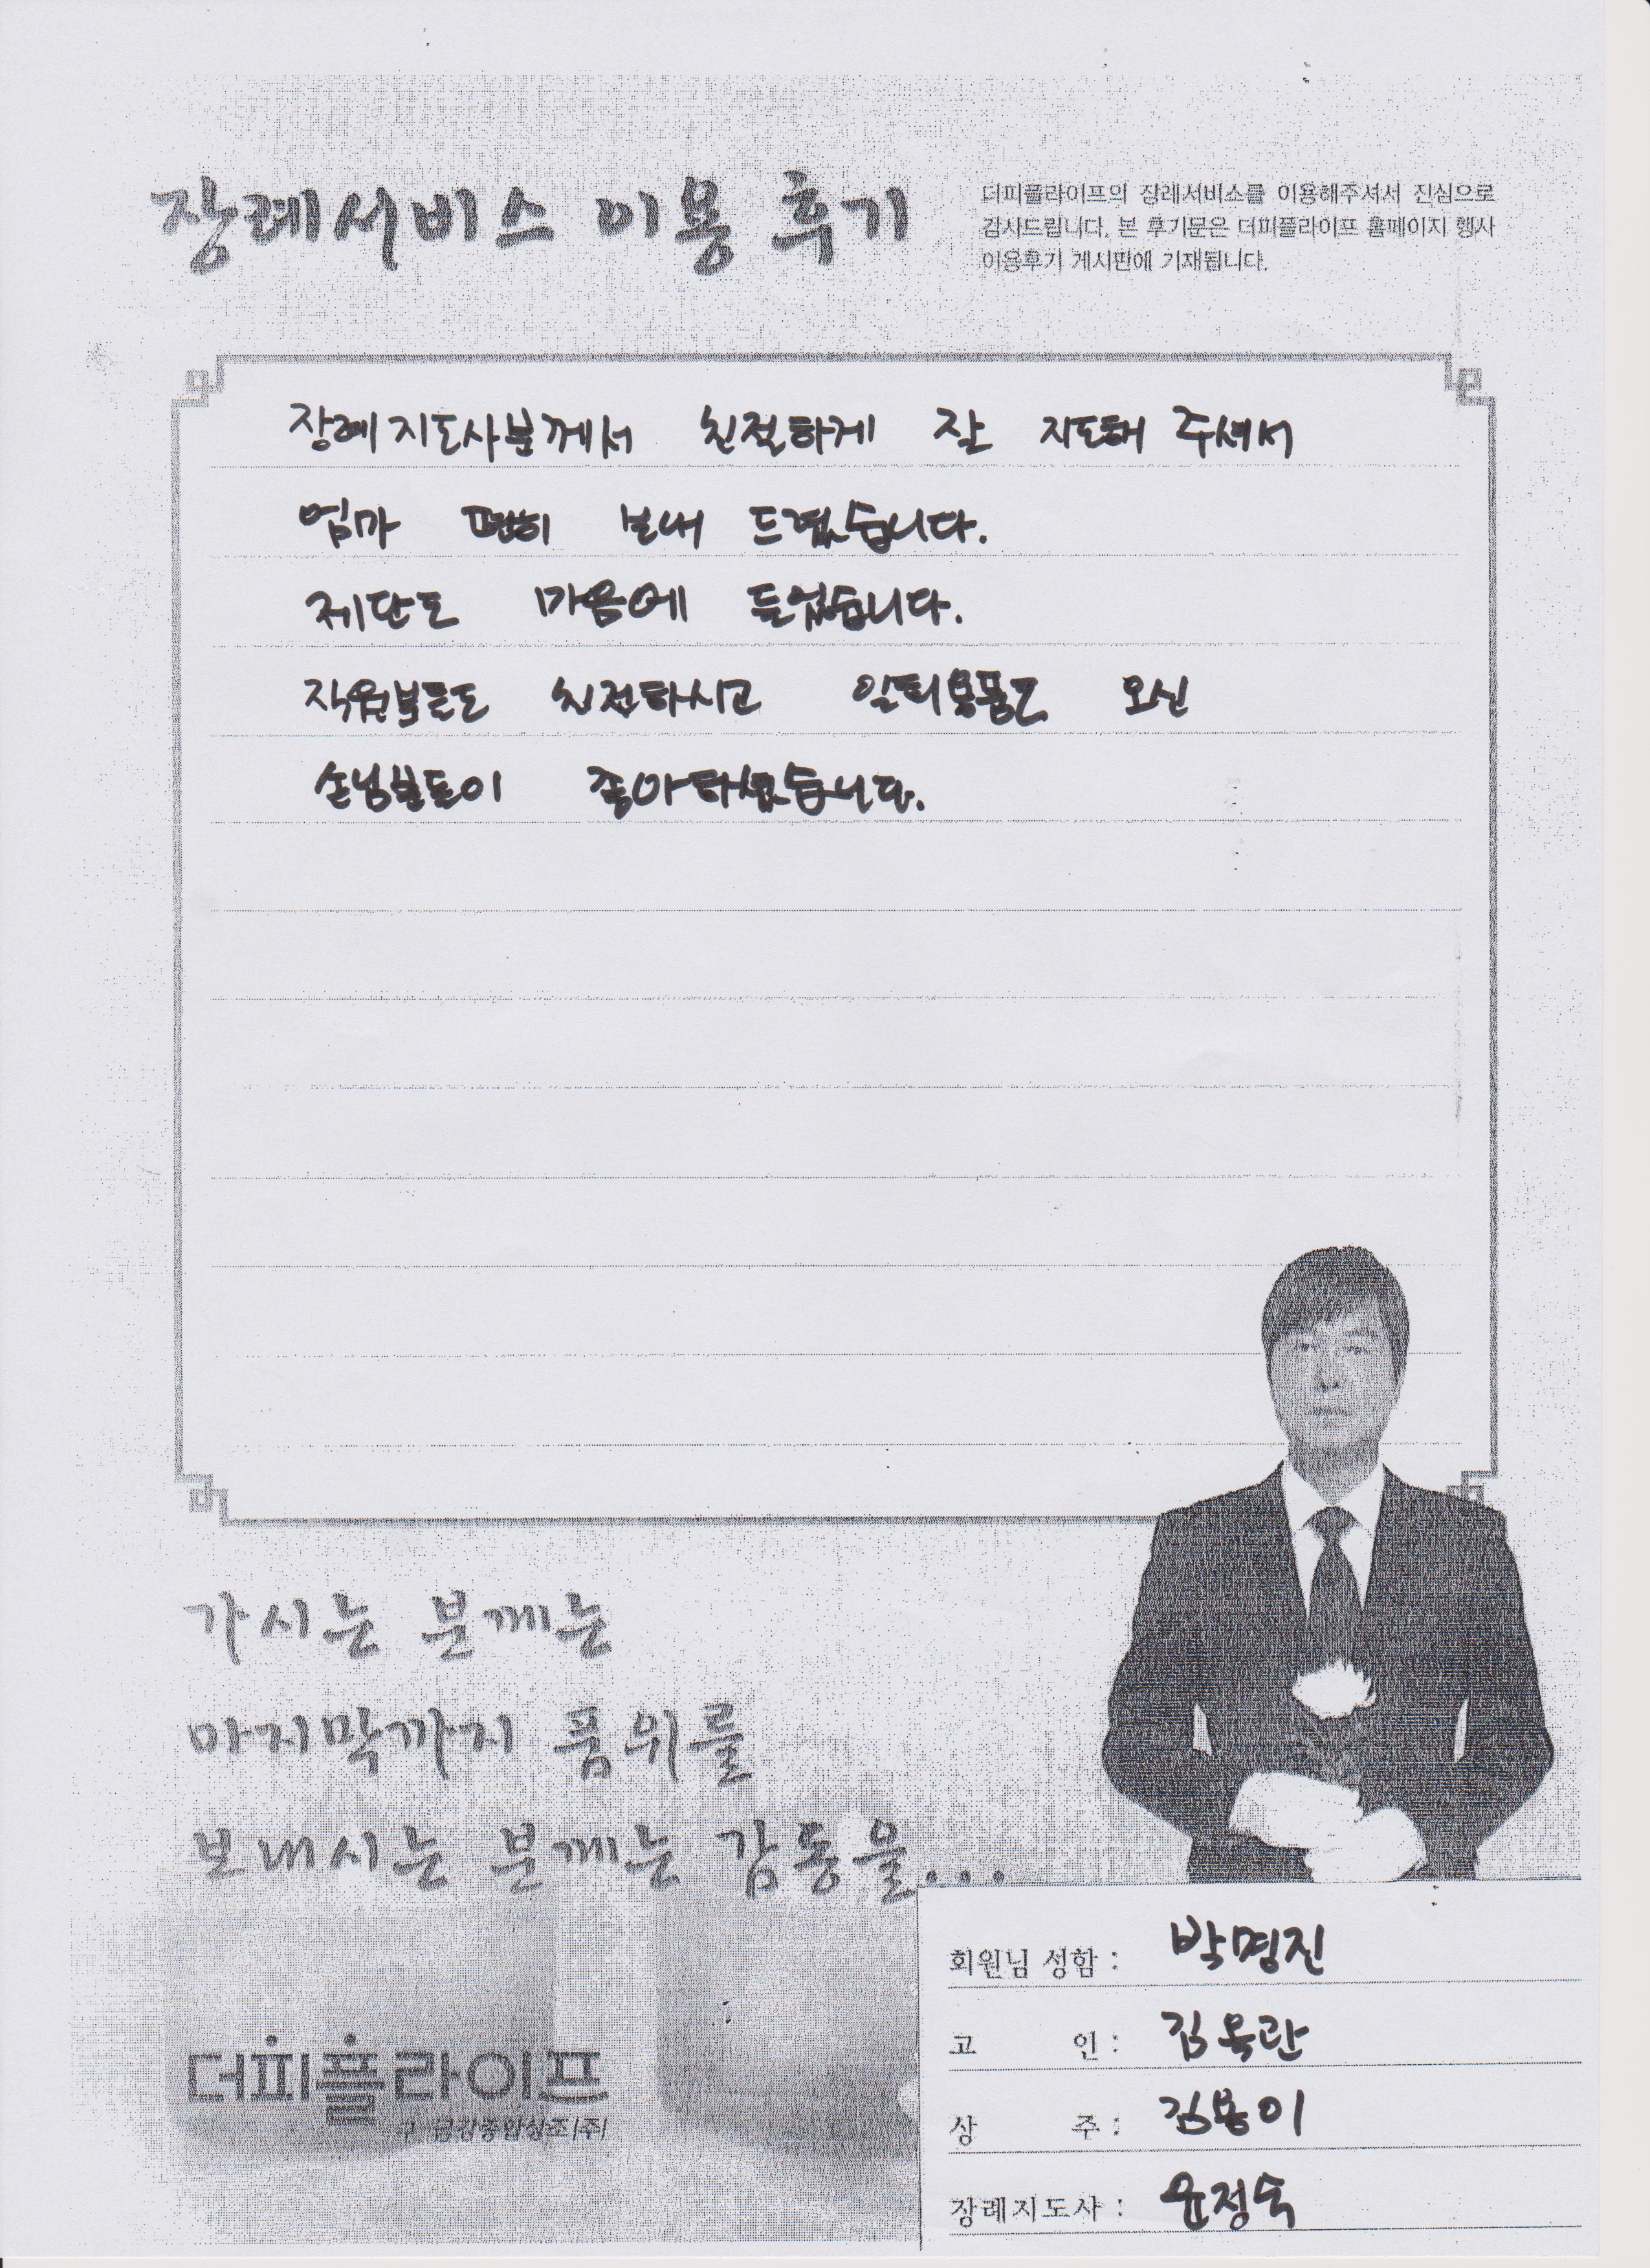 장례서비스 이용 후기
더피플라이프의 장례서비스를 이용해주셔서 진심으로
감사드립니다. 본 후기문은 더피플라이프 홈페이지 행사
이용후기 게시판에 기재됩니다.
장례지도사분께서 친절하게 잘 지도해 주셔서
엄마 편히 보내 드렸습니다.
제단도 마음에 들었습니다.
직원분들도 친절하시고 일회용품도 오신
손님분들이 좋아하셨습니다.
가시는 분께는
마지막까지 품위를
보내시는 분께는 감동을...
회원님 성함 : 박명진
고 인 : 김옥란
상 주 : 김봉이
장례지도사 : 윤정숙
더피플라이프